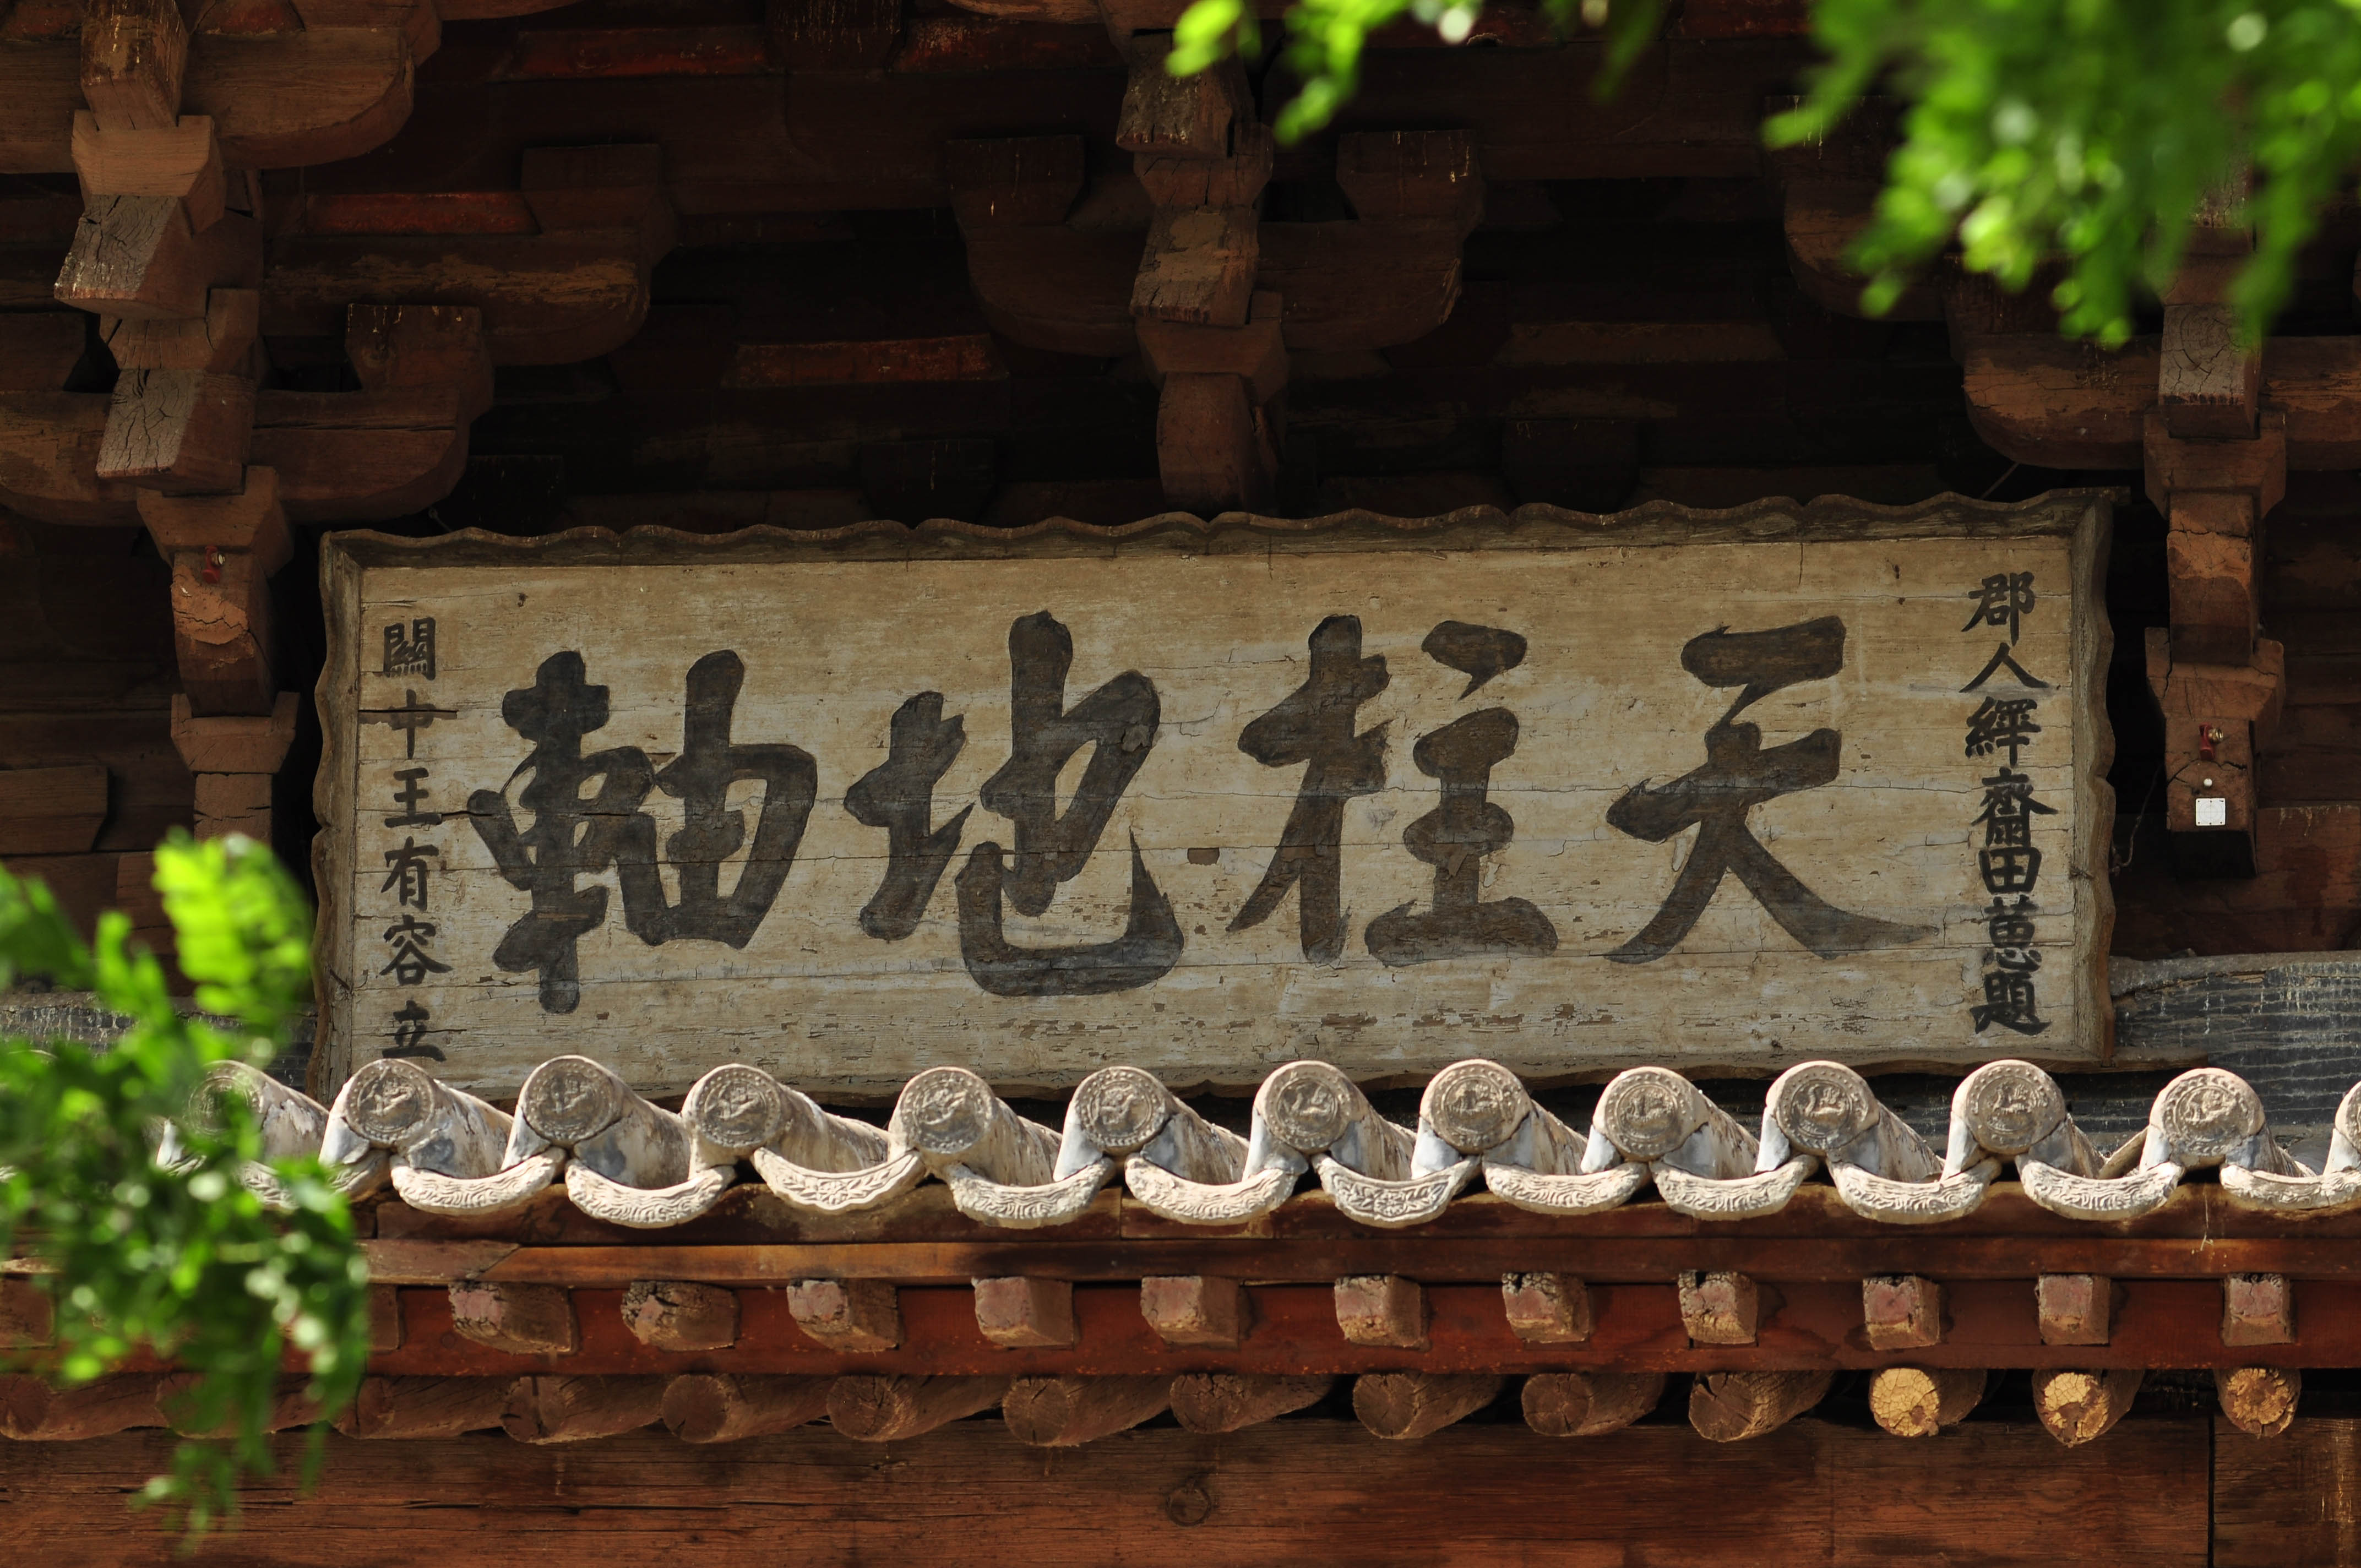 郡人繹齋田蕙題
天柱地軸
關中王有容立